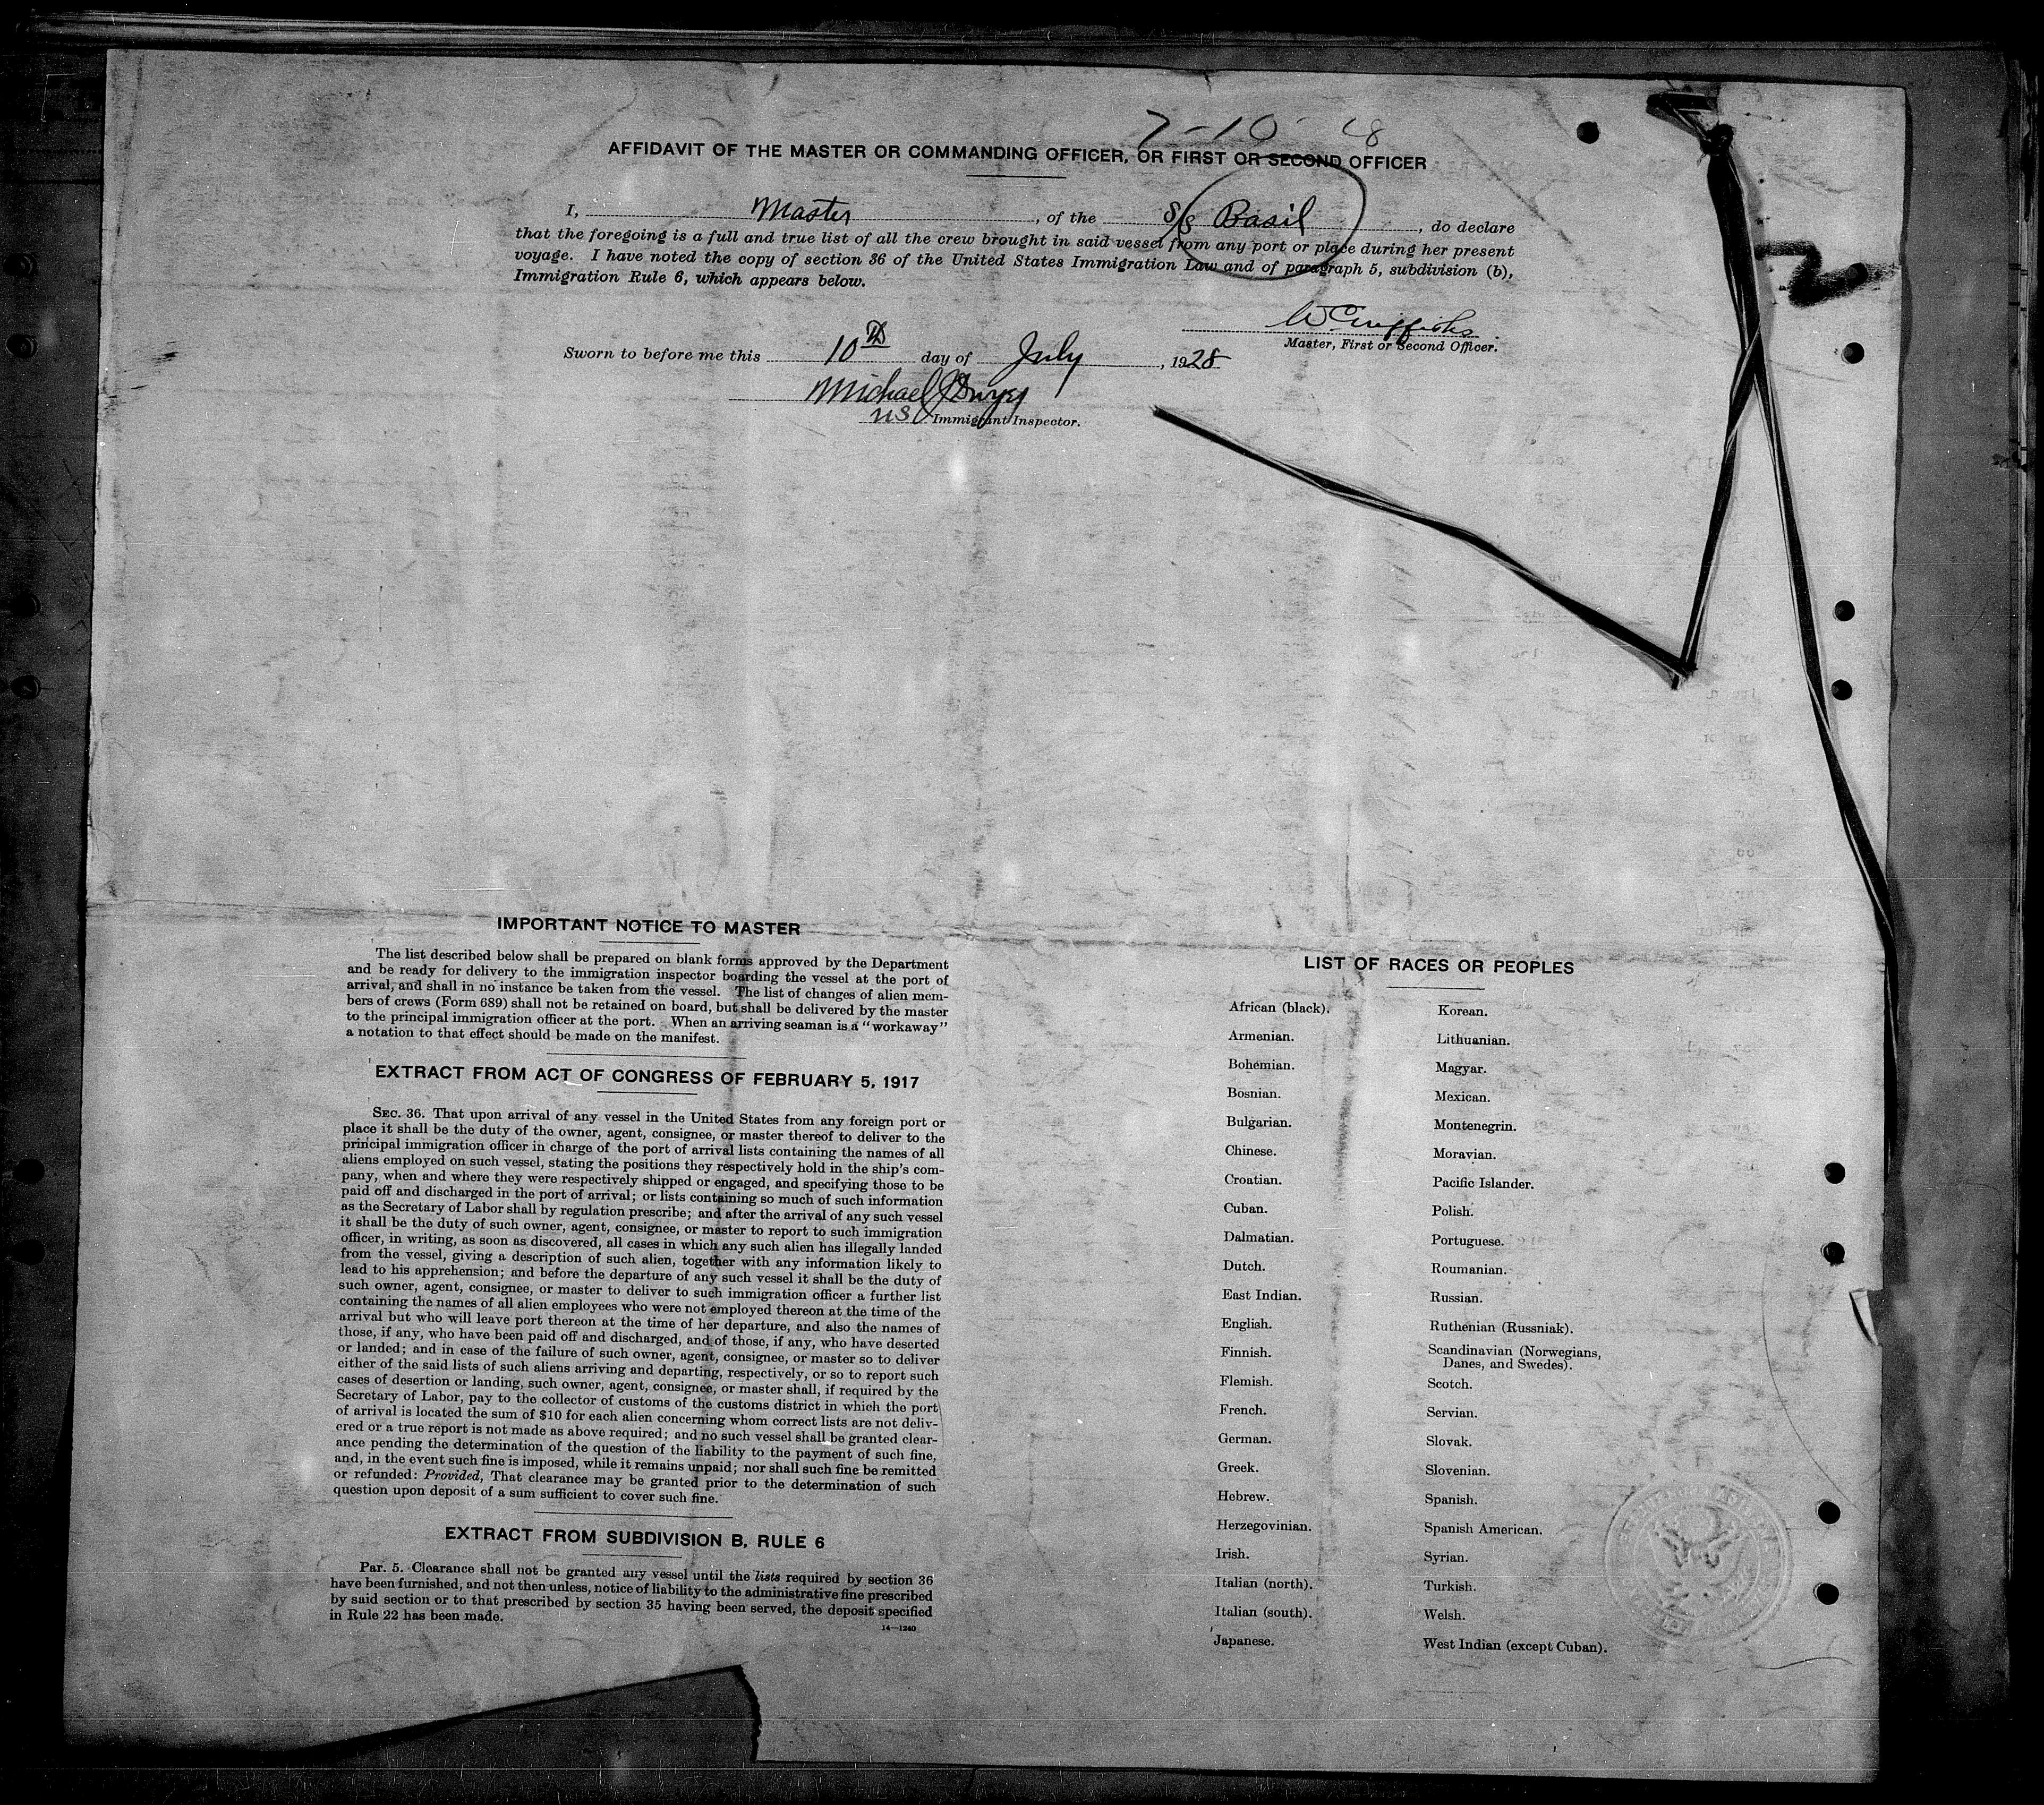 7-10-28
AFFIDAVIT OF THE MASTER OR COMMANDING OFFICER, OR FIRST OR SECOND OFFICER
I, Master, of the S/S Basil, do declare
that the foregoing is a full and true list of all the crew brought in said vessel from any port or place during her present
voyage. I have noted the copy of section 36 of the United States Immigration Law and of paragraph 5, subdivision (b),
Immigration Rule 6, which appears below.
W C Griffiths
Master, First or Second Officer.
Sworn to before me this 10th day of July, 1928
Michael J
US Immigrant Inspector.
IMPORTANT NOTICE TO MASTER
The list described below shall be prepared on blank forms approved by the Department
and be ready for delivery to the immigration inspector boarding the vessel at the port of
arrival, and shall in no instance be taken from the vessel. The list of changes of alien mem-
bers of crews (Form 689) shall not be retained on board, but shall be delivered by the master
to the principal immigration officer at the port. When an arriving seaman is a "workaway"
a notation to that effect should be made on the manifest.
EXTRACT FROM ACT OF CONGRESS OF FEBRUARY 5, 1917
SEC. 36. That upon arrival of any vessel in the United States from any foreign port or
place it shall be the duty of the owner, agent, consignee, or master thereof to deliver to the
principal immigration officer in charge of the port of arrival lists containing the names of all
aliens employed on such vessel, stating the positions they respectively hold in the ship's com-
pany, when and where they were respectively shipped or engaged, and specifying those to be
paid off and discharged in the port of arrival; or lists containing so much of such information
as the Secretary of Labor shall by regulation prescribe; and after the arrival of any such vessel
it shall be the duty of such owner, agent, consignee, or master to report to such immigration
officer, in writing, as soon as discovered, all cases in which any such alien has illegally landed
from the vessel, giving a description of such alien, together with any information likely to
lead to his apprehension; and before the departure of any such vessel it shall be the duty of
such owner, agent, consignee, or master to deliver to such immigration officer a further list
containing the names of all alien employees who were not employed thereon at the time of the
arrival but who will leave port thereon at the time of her departure, and also the names of
those, if any, who have been paid off and discharged, and of those, if any, who have deserted
or landed; and in case of the failure of such owner, agent, consignee, or master so to deliver
either of the said lists of such aliens arriving and departing, respectively, or so to report such
cases of desertion or landing, such owner, agent, consignee, or master shall, if required by the
Secretary of Labor, pay to the collector of customs of the customs district in which the port
of arrival is located the sum of $10 for each alien concerning whom correct lists are not deliv-
ered or a true report is not made as above required; and no such vessel shall be granted clear-
ance pending the determination of the question of the liability to the payment of such fine,
and, in the event such fine is imposed, while it remains unpaid; nor shall such fine be remitted
or refunded: Provided, That clearance may be granted prior to the determination of such
question upon deposit of a sum sufficient to cover such fine.
EXTRACT FROM SUBDIVISION B, RULE 6
Par. 5. Clearance shall not be granted any vessel until the lists required by section 36
have been furnished, and not then unless, notice of liability to the administrative fine prescribed
by said section or to that prescribed by section 35 having been served, the deposit specified
in Rule 22 has been made.
14—1240
LIST OF RACES OR PEOPLES
African (black).
Armenian.
Bohemian.
Bosnian.
Bulgarian.
Chinese.
Croatian.
Cuban.
Dalmatian.
Dutch.
East Indian.
English.
Finnish.
Flemish.
French.
German.
Greek.
Hebrew.
Herzegovinian.
Irish.
Italian (north).
Italian (south).
Japanese.
Korean.
Lithuanian.
Magyar.
Mexican.
Montenegrin.
Moravian.
Pacific Islander.
Polish.
Portuguese.
Roumanian.
Russian.
Ruthenian (Russniak).
Scandinavian (Norwegians,
Danes, and Swedes).
Scotch.
Servian.
Slovak.
Slovenian.
Spanish.
Spanish American.
Syrian.
Turkish.
Welsh.
West Indian (except Cuban).